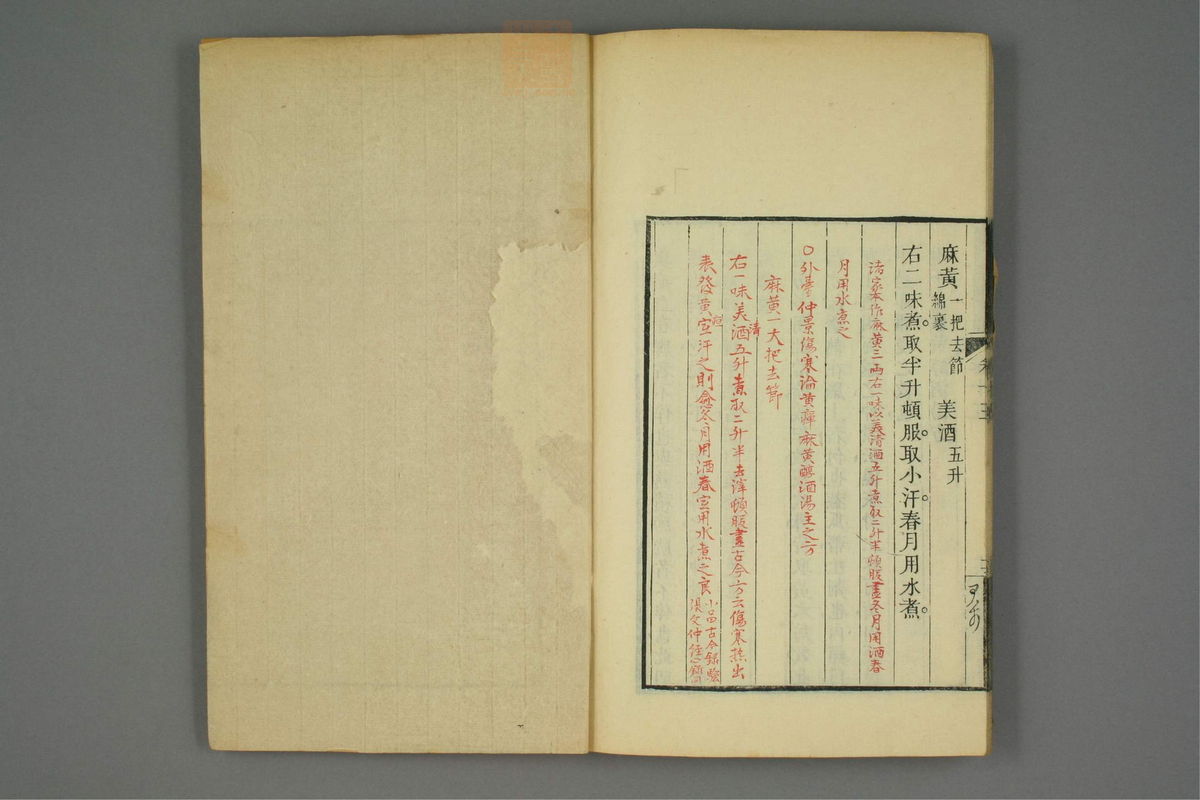 麻黄一把去節綿裹 美酒五升
右二味煮。取半升頓服。取小汗。春月用水煮。
諸家本作麻黄三兩右一味以美清酒五升煮取二升半頓服盡冬月用酒春
月用水煮之
〇外臺仲景傷寒論黄癉麻黄醇酒湯主之方
麻黄一大把去節
右一味美清酒五升煮取二升半去滓頓服盡古今方云傷寒熱出
表發黄疸宜汗之則愈冬月用酒春宜用水煮之良小品古今録驗張文仲經心録同